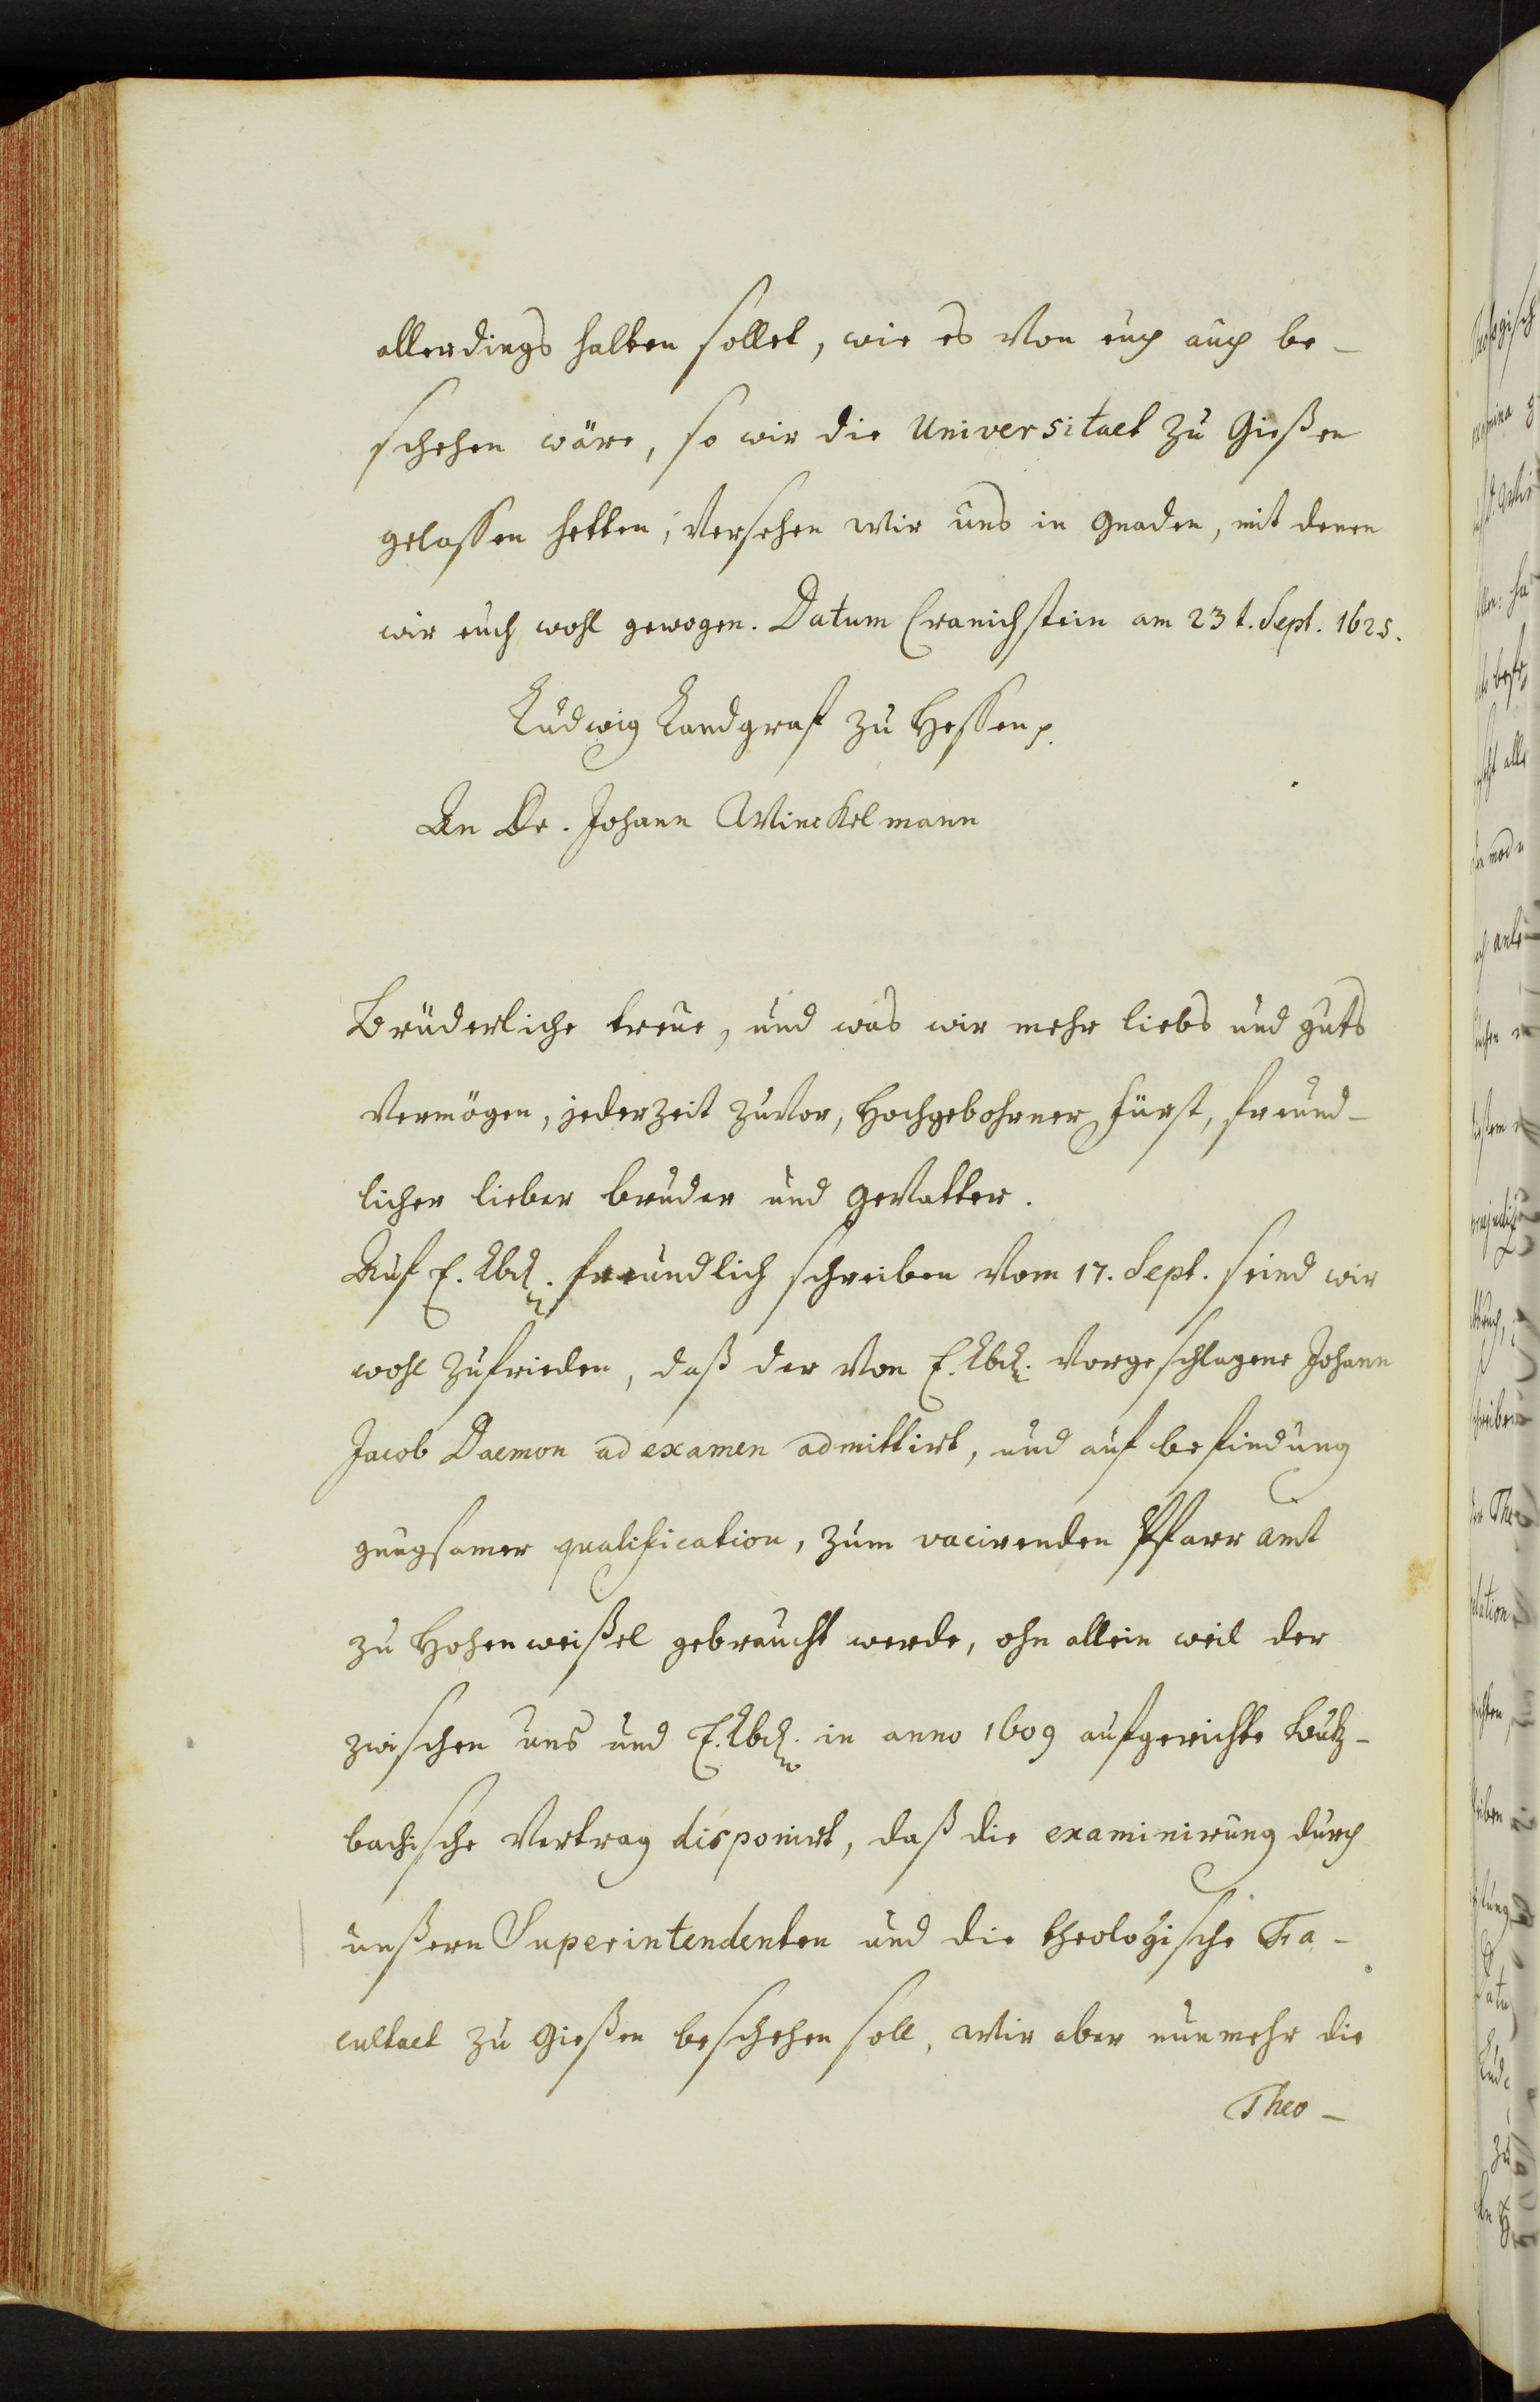 allerdings halten sollet, wie es von euch auch be-
schehen wäre, so wir die Universitaet zu Gießen
gelassen hetten; versehen wir uns in gnaden, mit denen
wir euch wohl gewogen. Datum Cranichstein am 23t. Sept. 1625.
Ludwig Landgraf zu Hessen p.
An Dr. Johann Winckelmann
Brüderliche treue, und was wir mehr liebs und guts
vermögen, jederzeit zuvor, Hochgebohrner Fürst, freund-
licher lieber bruder und gevatter.
Auf E. Lbd. freundlich schreiben vom 17. Sept. seind wir
wohl zufrieden, daß der von E. Lbd. vorgeschlagene Johann
Jacob Daemon ad examen admittirt, und auf befindung
gnugsamer qualification, zum vacirenden Pfarr amt
zu Hohenweißel gebraucht werde, ohn allein weil der
zwischen uns und E. Lbd. in anno 1609 aufgerichte Butz-
bachische Vertrag disponirt, daß die examinirung durch
unßern Superintendenten und die theologische Fa-
cultaet zu Gießen beschehen soll, wir aber nunmehr die
Theo-